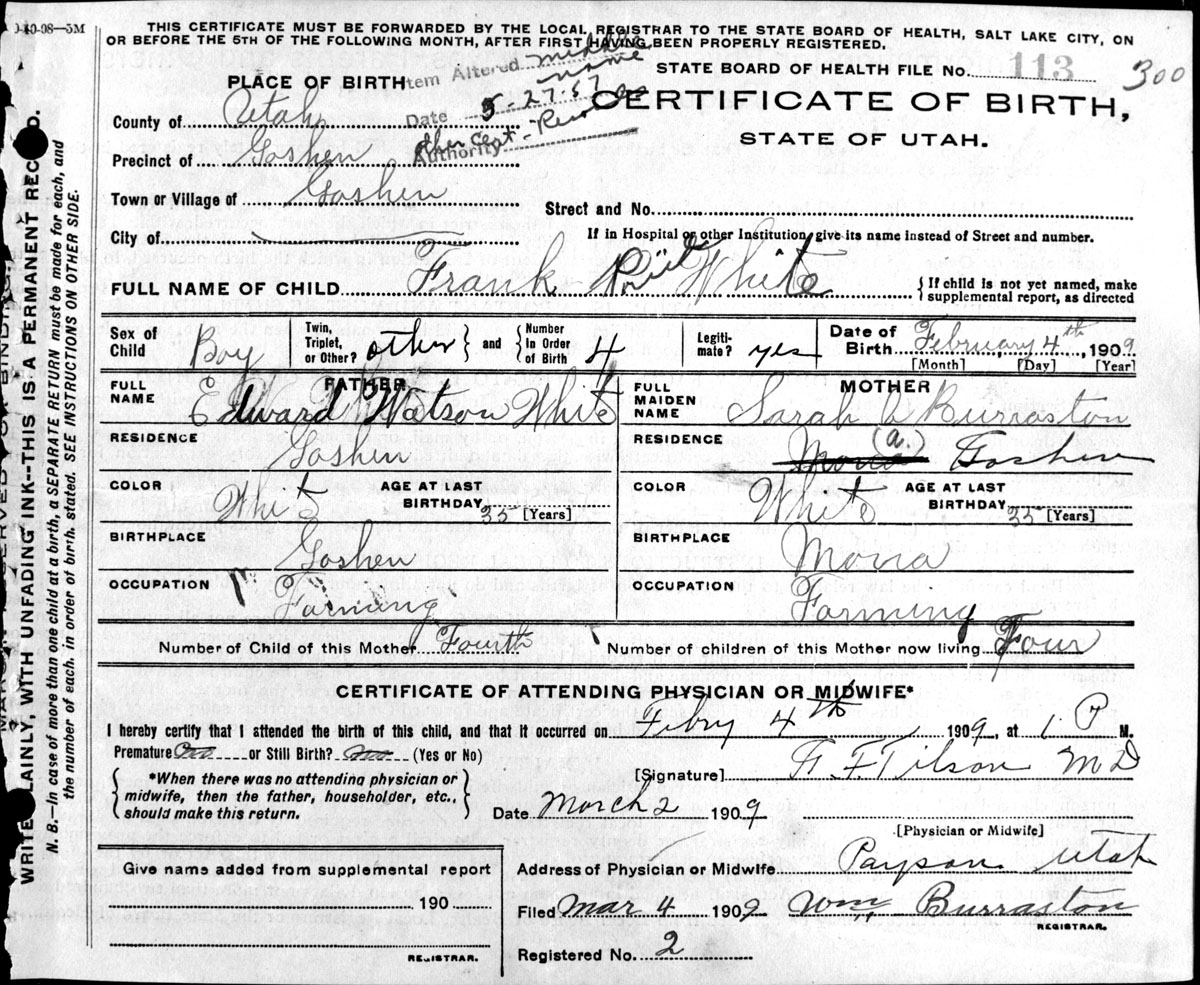 0-10-08—5M
THIS CERTIFICATE MUST BE FORWARDED BY THE LOCAL REGISTRAR TO THE STATE BOARD OF HEALTH, SALT LAKE CITY, ON
OR BEFORE THE 5TH OF THE FOLLOWING MONTH, AFTER FIRST HAVING BEEN PROPERLY REGISTERED.
PLACE OF BIRTH
tem Altered middle name
STATE BOARD OF HEALTH FILE No. 113
300
Date 5-27-57
CERTIFICATE OF BIRTH,
STATE OF UTAH.
County of Utah
other Cert.
Authority
Precinct of Goshen
Town or Village of Goshen
Street and No.
City of
If in Hospital or other Institution give its name instead of Street and number.
FULL NAME OF CHILD Frank White
{ If child is not yet named, make supplemental report, as directed
Sex of Child Boy
Twin, Triplet, or Other? other } and { Number In Order of Birth 4
Legitimate? yes
Date of Birth February 4th, 1909
[Month] [Day] [Year]
FATHER
FULL NAME Edward Watson White
MOTHER
FULL MAIDEN NAME Sarah Burraston
RESIDENCE Goshen
RESIDENCE Mona (a.) Goshen
COLOR White AGE AT LAST BIRTHDAY 35 [Years]
COLOR White AGE AT LAST BIRTHDAY 35 [Years]
BIRTHPLACE Goshen
BIRTHPLACE Mona
OCCUPATION Farming
OCCUPATION Farming
Number of Child of this Mother Fourth
Number of children of this Mother now living Four
CERTIFICATE OF ATTENDING PHYSICIAN OR MIDWIFE*
I hereby certify that I attended the birth of this child, and that it occurred on Febry 4th, 1909, at 1 P M.
Premature or Still Birth? (Yes or No)
{ *When there was no attending physician or midwife, then the father, householder, etc., should make this return. }
[Signature] F. F. Tilson M D
Date March 2 1909
[Physician or Midwife]
Give name added from supplemental report
190
REGISTRAR.
Address of Physician or Midwife Payson Utah
Filed Mar 4 1909 Wm Burraston
REGISTRAR.
Registered No. 2
WRITE PLAINLY, WITH UNFADING INK--THIS IS A PERMANENT RECORD.
N. B.—In case of more than one child at a birth, a SEPARATE RETURN must be made for each, and
the number of each, in order of birth, stated. SEE INSTRUCTIONS ON OTHER SIDE.